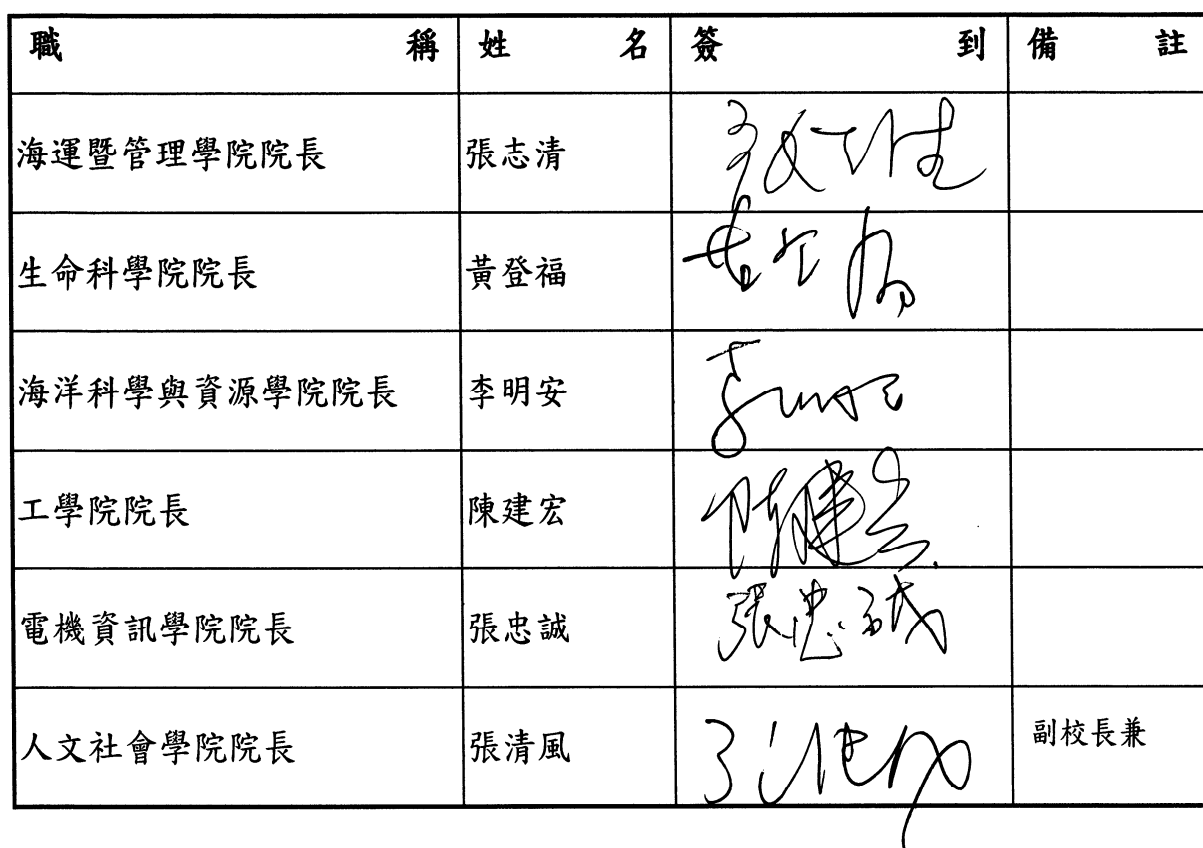 職稱 姓名 簽到 備註
海運暨管理學院院長 張志清
生命科學院院長 黃登福
海洋科學與資源學院院長 李明安
工學院院長 陳建宏 陳建宏
電機資訊學院院長 張忠誠 張忠誠
人文社會學院院長 張清風 副校長兼